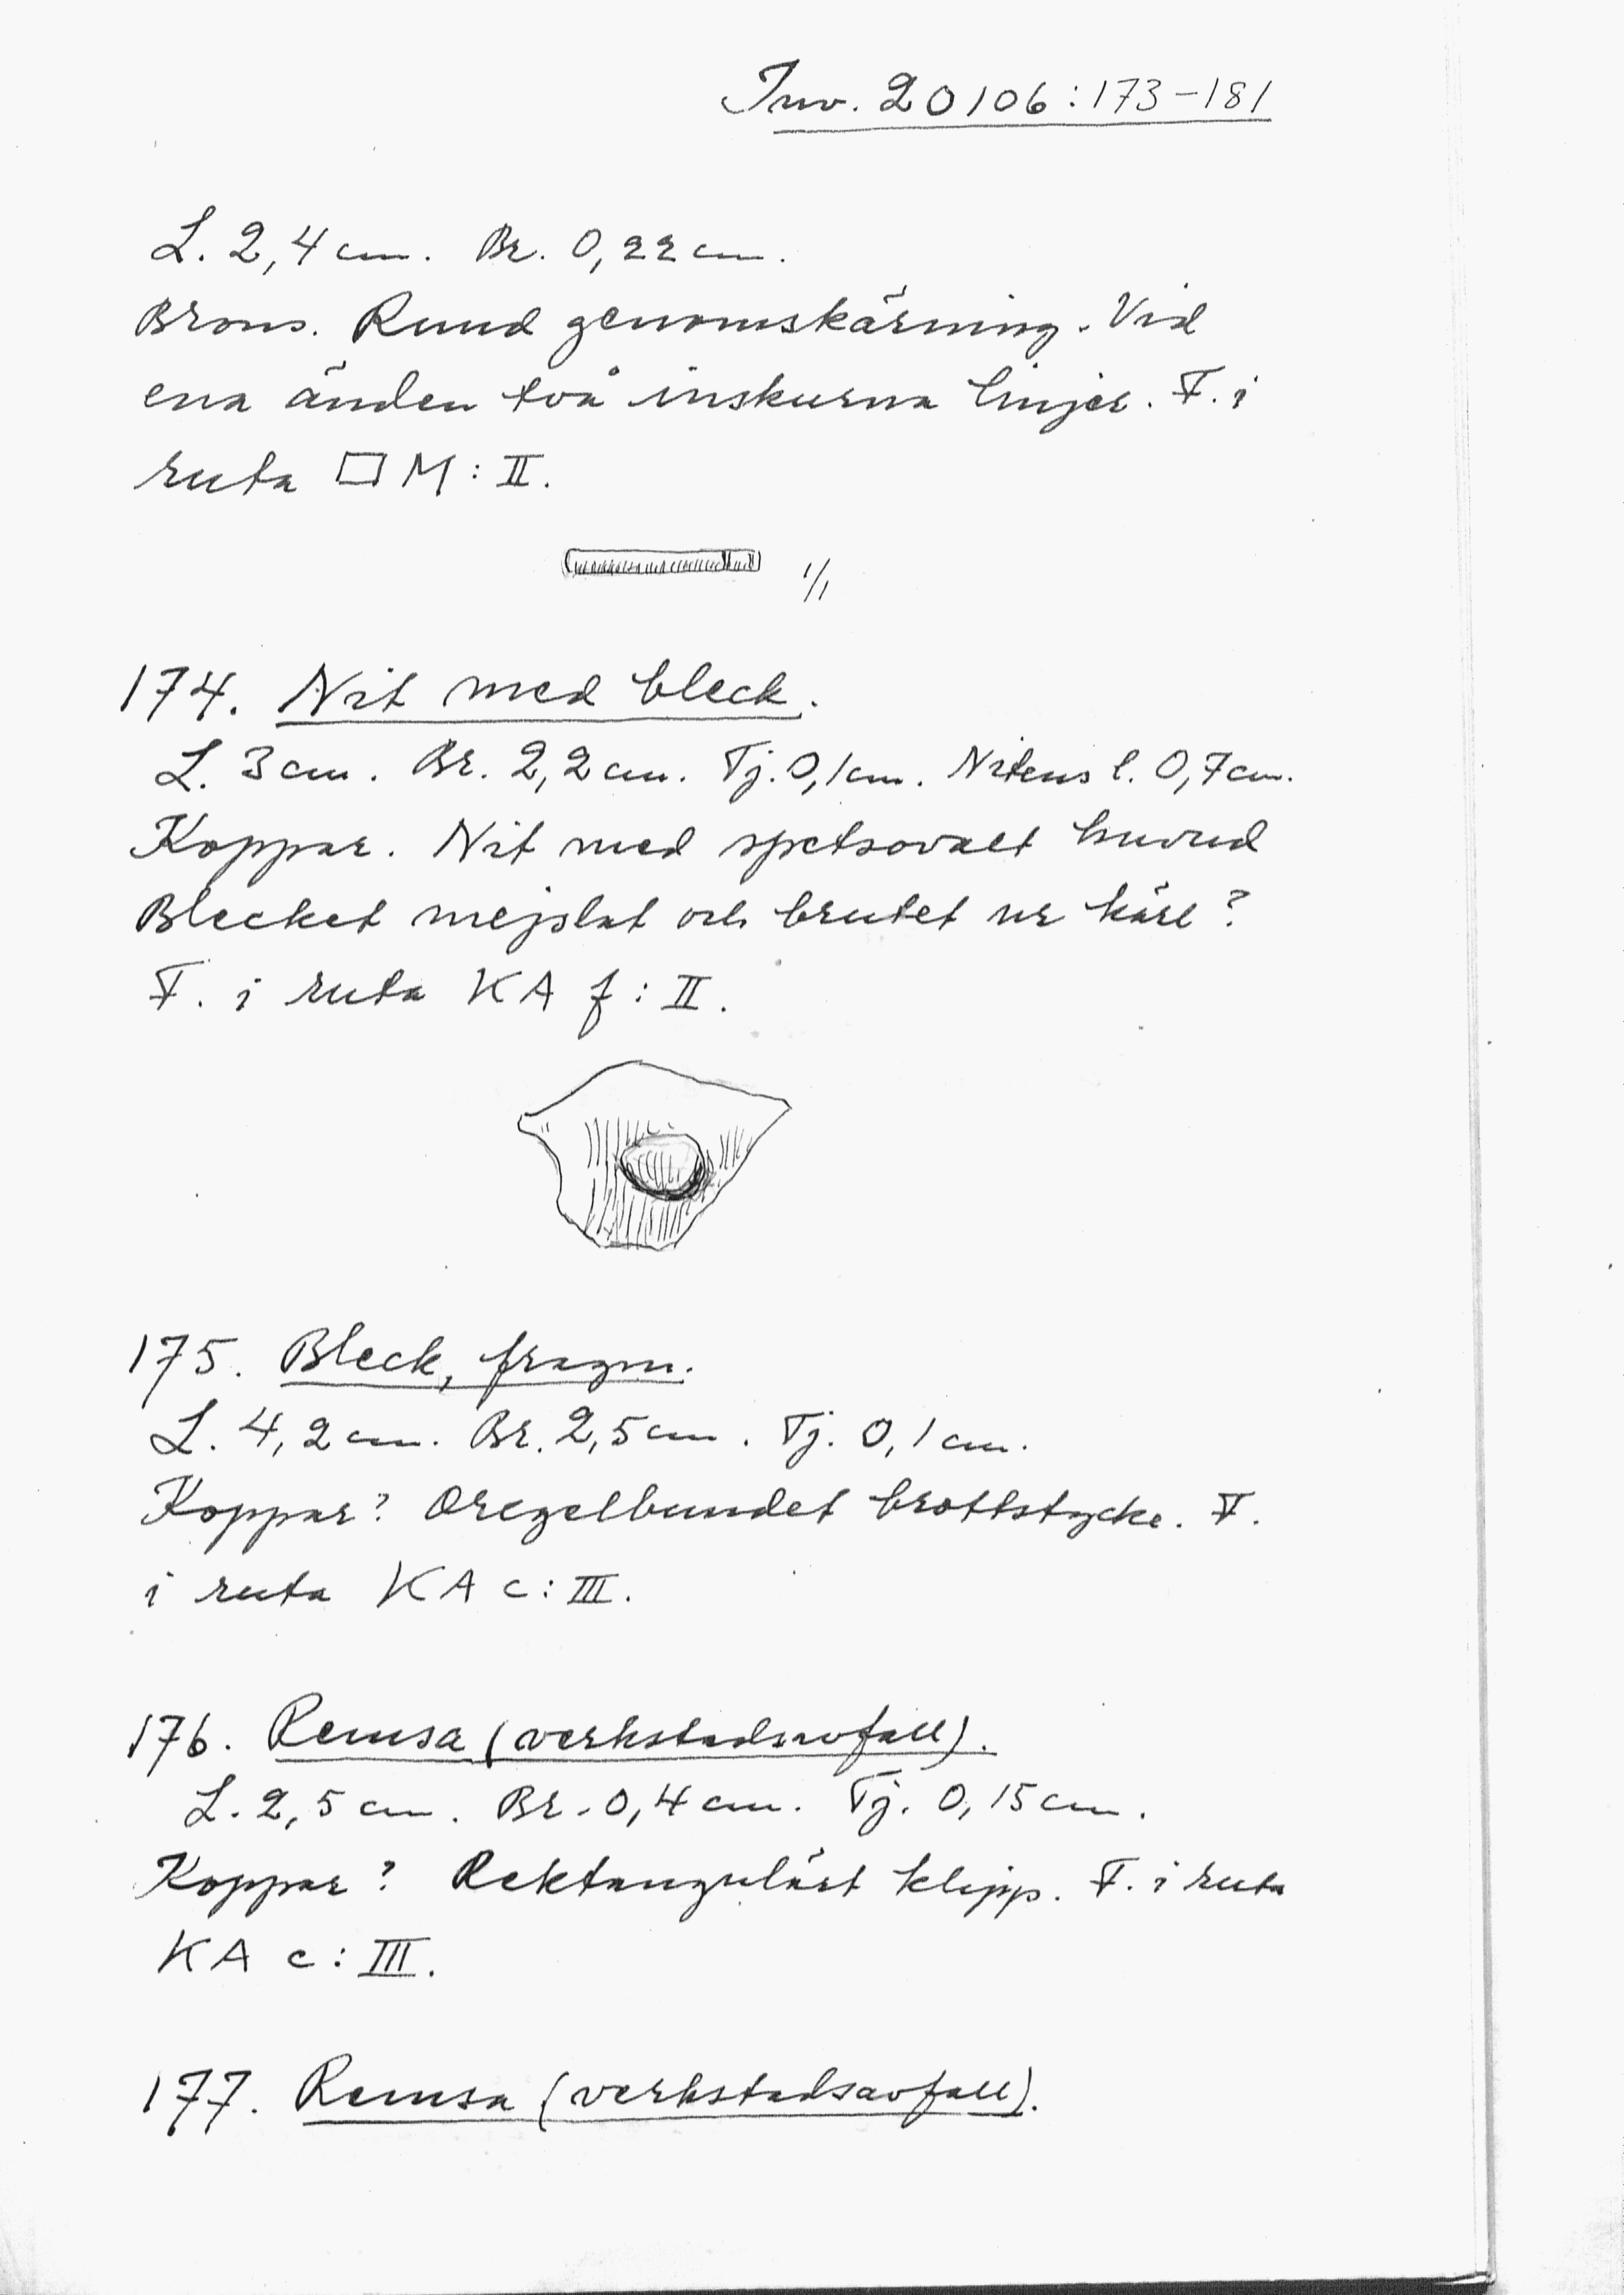 Inv. 20106:173-181
L. 2,4 cm. Br. 0,22 cm.
Brons. Rund genomskärning. Vid
ena änden två inskurna linjer. F. i
ruta □ M: II.
1/1
174. Nit med bleck.
L. 3 cm. Br. 2,2 cm. Tj. 0,1 cm. Nitens l. 0,7 cm.
Koppar. Nit med spetsovalt huvud
Blecket mejslat och brutet ur kärl?
F. i ruta KA f: II.
175. Bleck, fragm.
L. 4,2 cm. Br. 2,5 cm. Tj. 0,1 cm.
Koppar? Oregelbundet brottstycke. F.
i ruta KA c: III.
176. Remsa (verkstadsavfall).
L. 2,5 cm. Br. 0,4 cm. Tj. 0,15 cm.
Koppar? Rektangulärt klipp. F. i ruta
KA c: III.
177. Remsa (verkstadsavfall).